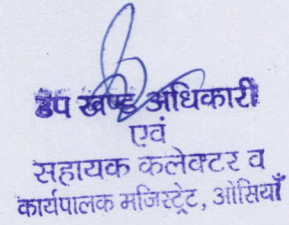 उप खण्ड अधिकारी
एवं
सहायक कलेक्टर व
कार्यपालक मजिस्ट्रेट, ओसियाँ